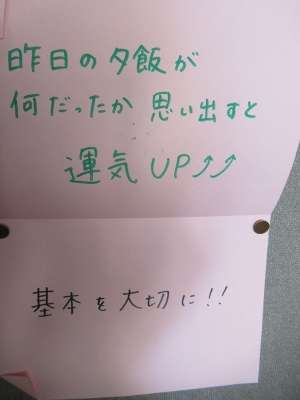 昨日の夕飯が
何だったか 思い出すと
運気UP⤴⤴
基本を大切に!!